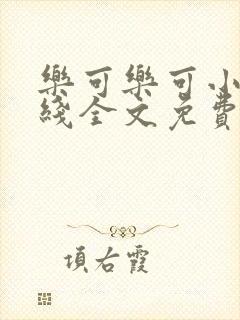 樂可樂可小
綫全文免費
項右霞